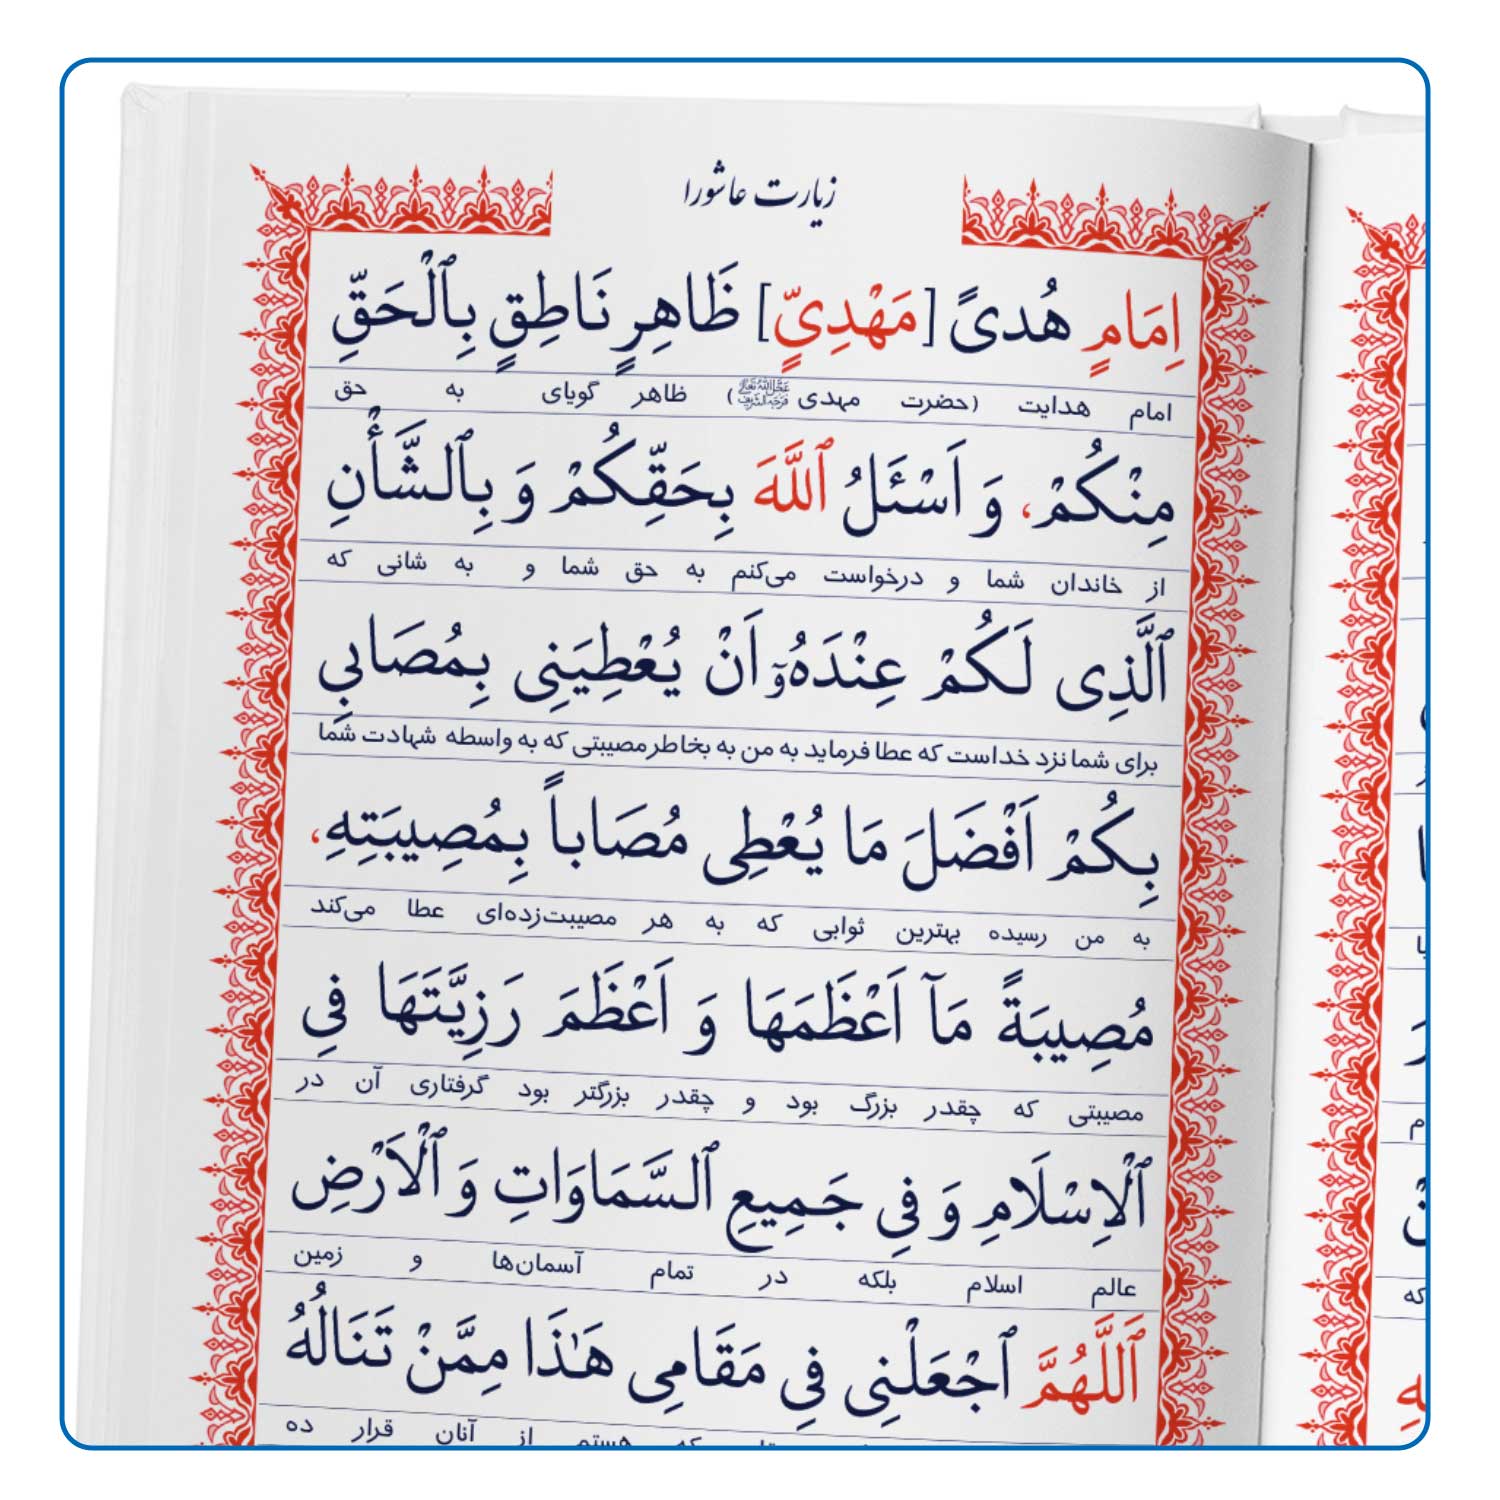 زیارت عاشورا
اِمَامٍ هُدیً [مَهْدِیٍّ] ظَاهِرٍ نَاطِقٍ بِٱلْحَقِّ
امام هدایت (حضرت مهدی عَجَّلَ اللهُ تَعَالیٰ فَرَجَهُ الشَّرِیف) ظاهر گویای به حق
مِنْکُمْ، وَ اَسْئَلُ ٱللَّهَ بِحَقِّکُمْ وَ بِٱلشَّأْنِ
از خاندان شما و درخواست می‌کنم به حق شما و به شانی که
ٱلَّذِی لَکُمْ عِنْدَهُوٓ اَنْ یُعْطِیَنِی بِمُصَابِی
برای شما نزد خداست که عطا فرماید به من به بخاطر مصیبتی که به واسطه شهادت شما
بِکُمْ اَفْضَلَ مَا یُعْطِی مُصَاباً بِمُصِیبَتِهِ،
به من رسیده بهترین ثوابی که به هر مصیبت‌زده‌ای عطا می‌کند
مُصِیبَةً مَآ اَعْظَمَهَا وَ اَعْظَمَ رَزِیَّتَهَا فِی
مصیبتی که چقدر بزرگ بود و چقدر بزرگتر بود گرفتاری آن در
ٱلْاِسْلَامِ وَ فِی جَمِیعِ ٱلسَّمَاوَاتِ وَ ٱلْاَرْضِ
عالم اسلام بلکه در تمام آسمان‌ها و زمین
اَللَّهُمَّ ٱجْعَلْنِی فِی مَقَامِی هَـٰذَا مِمَّنْ تَنَالُهُ
که هستم از آنان قرار ده